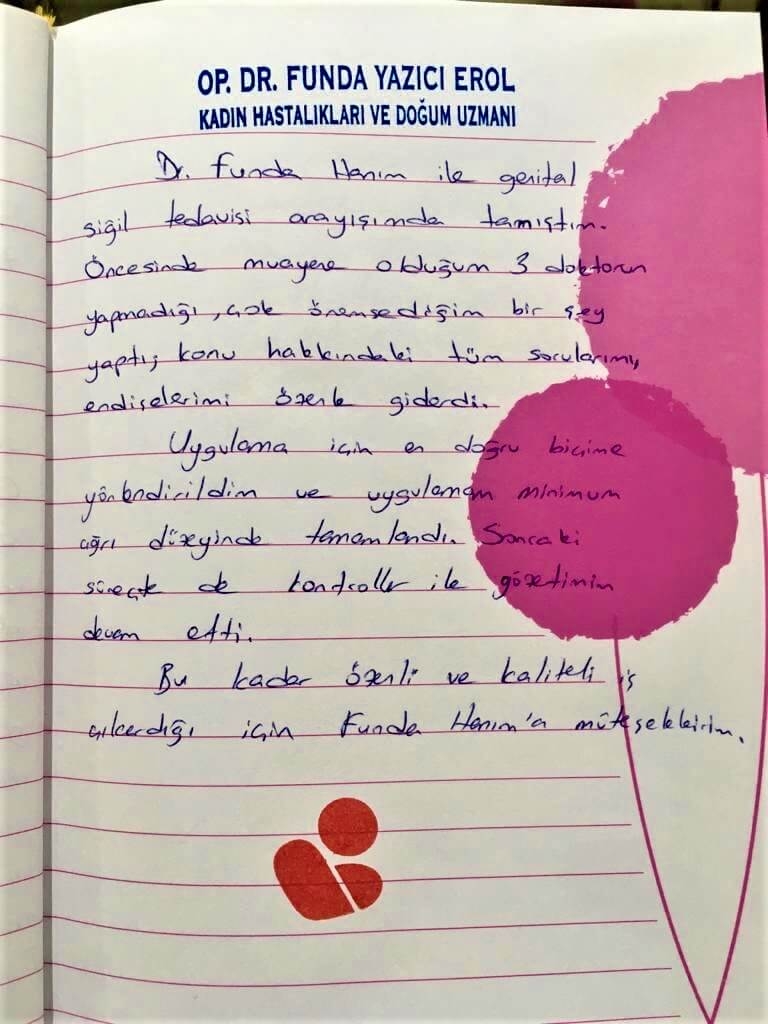 OP. DR. FUNDA YAZICI EROL
KADIN HASTALIKLARI VE DOĞUM UZMANI
Dr. Funda Hanım ile genital
siğil tedavisi arayışımda tanıştım.
Öncesinde muayene olduğum 3 doktorun
yapmadığı, çok önemsediğim bir şey
yaptı; konu hakkındaki tüm sorularımı,
endişelerimi özenle giderdi.
Uygulama için en doğru biçime
yönlendirildim ve uygulamam minimum
ağrı düzeyinde tamamlandı. Sonraki
süreçte de kontroller ile gözetimim
devam etti.
Bu kadar özenli ve kaliteli iş
çıkardığı için Funda Hanım'a müteşekkirim.